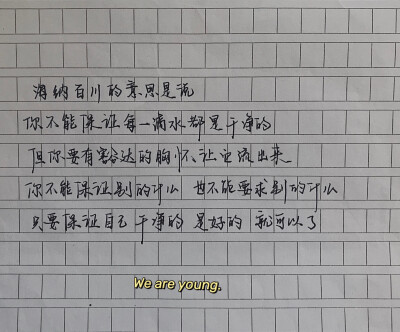 海纳百川的意思是说
你不能保证每一滴水都是干净的
但你要有容达的胸怀让它流出来
你不能保证别的什么 也不能要求别的什么
只要保证自己干净的 是好的 就可以了
We are young.